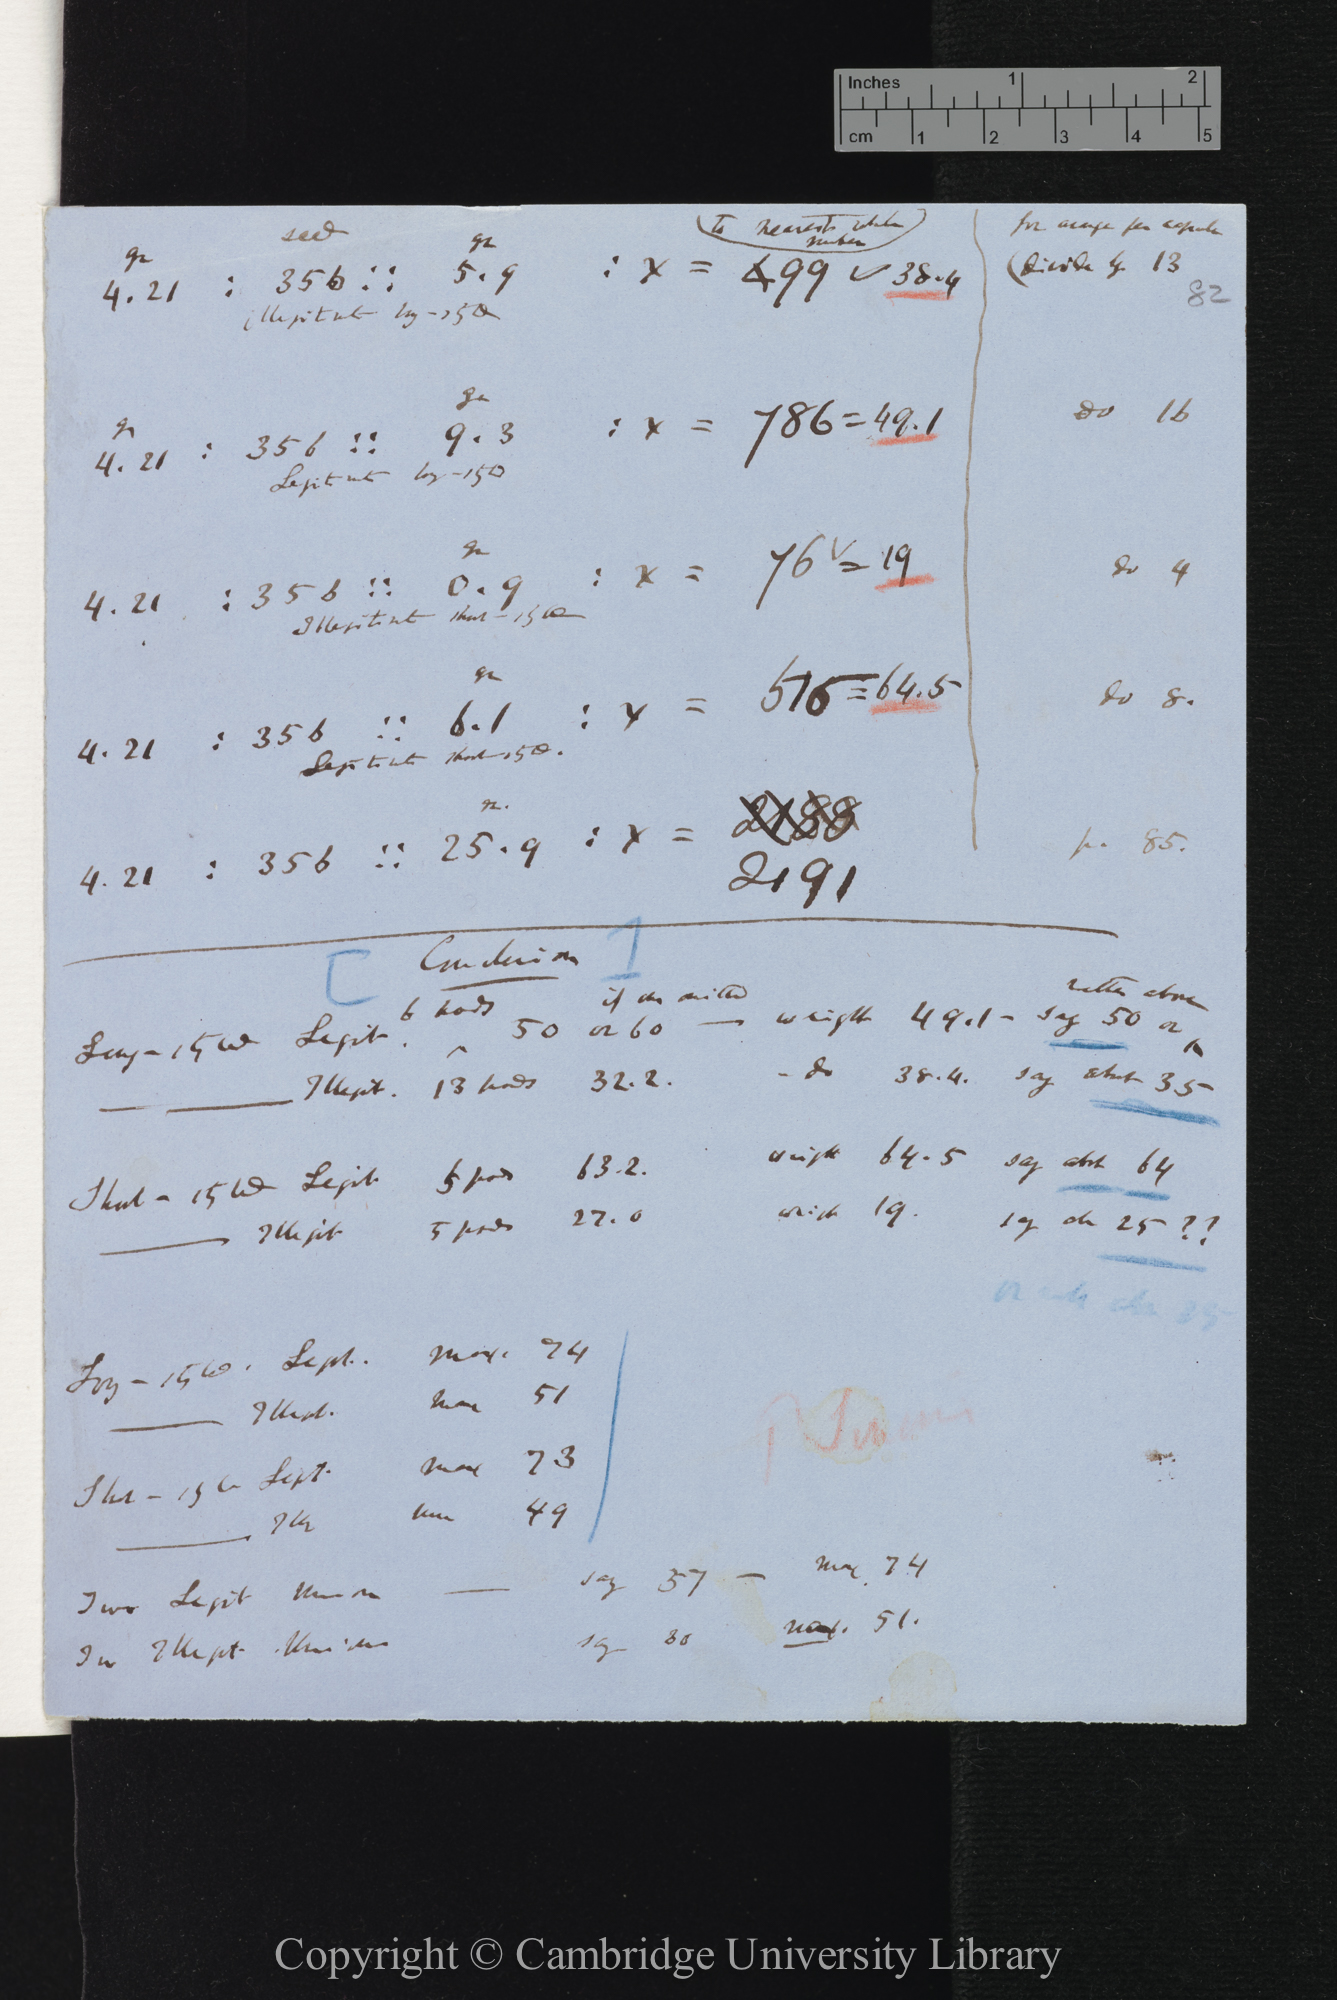 Inches 1 2
cm 1 2 3 4 5
(to nearest whole number)
for average per capsule
gr seed gr
4.21 : 356 :: 5.9 : x = 499 38.4 (divide by 13
82
illegitimate long-styled
gr gr
4.21 : 356 :: 9.3 : x = 786 = 49.1 do 16
Legitimate long-styled
gr
4.21 : 356 :: 0.9 : x = 76 = 19 do 4
Illegitimate short-styled
gr
4.21 : 356 :: 6.1 : x = 515 = 64.5 do 8.
Legitimate short-styled.
gr.
4.21 : 356 :: 25.9 : x = 2188
2191
p. 85.
[ Conclusion ]
6 pods if one omitted rather above
Long-styled Legit. 50 or 60 — weight 49.1 – say 50 or
Illegit. 13 pods 32.2. – do 38.4. say about 35
Short-styled Legit 5 pods 63.2. weight 64.5 say about 64
Illegit 5 pods 27.0 weight 19. say abt 25 ??
or abt 25
Long-styled. Legit. max. 74
Illegit. max 51
Short-styled Legit. max 73
Ill max 49
Two Legit Union — say 57 — max 74
Two Illegit. Unions say 30 max. 51.
Copyright © Cambridge University Library